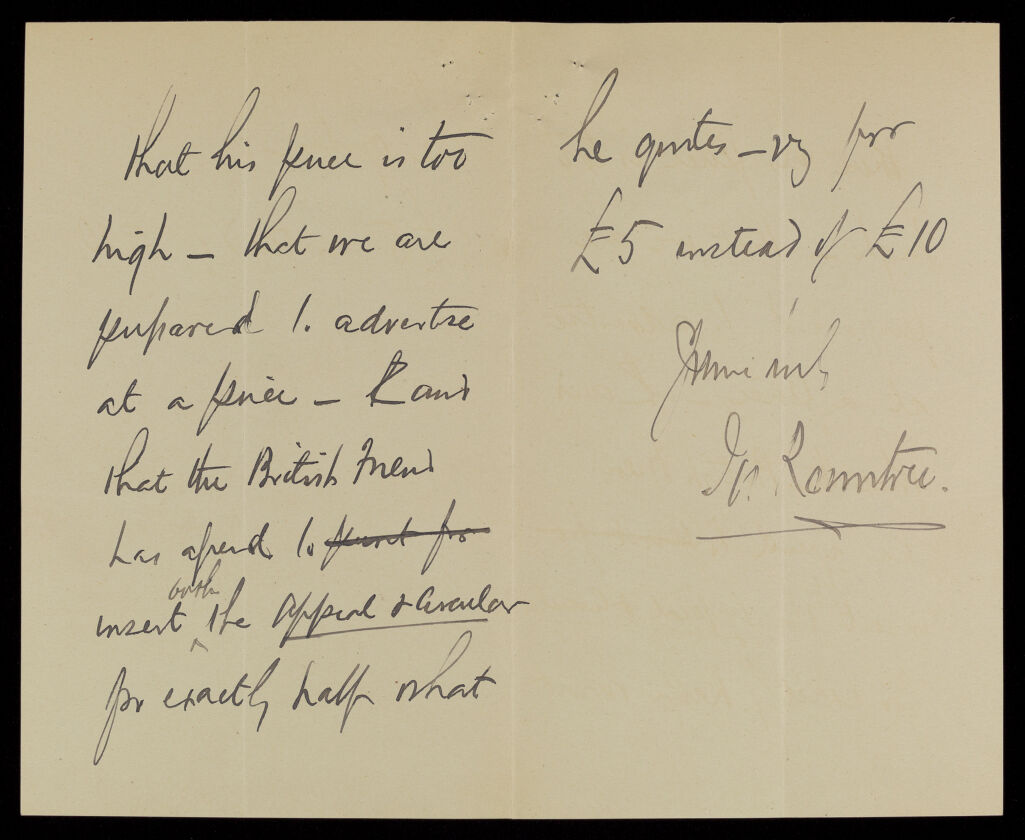 that his price is too
high – that we are
prepared to advertise
at a price – & and
that the British Friend
has agreed to print for
insert both the Appeal & Circular
for exactly half what
he quotes – viz for
£5 instead of £10
Jos. Rowntree.